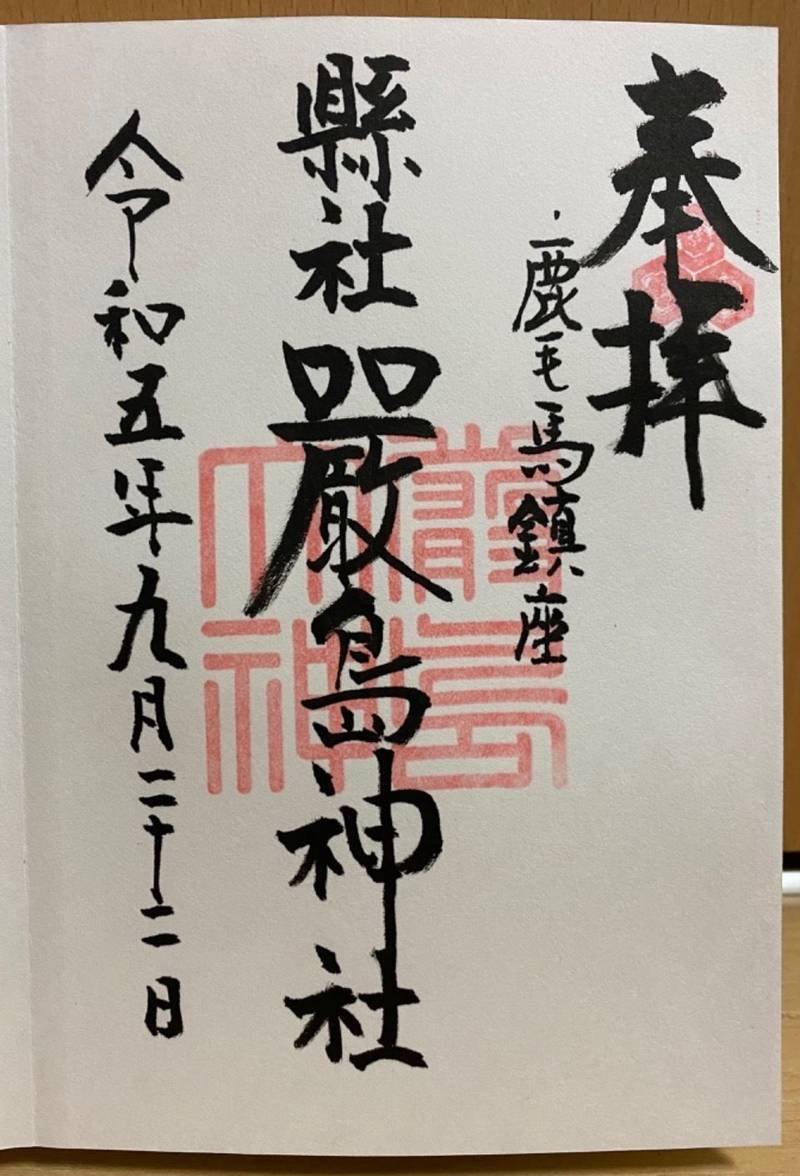 奉拝
鹿毛馬鎮座
縣社 嚴島神社
令和五年九月二十二日
嚴島大神